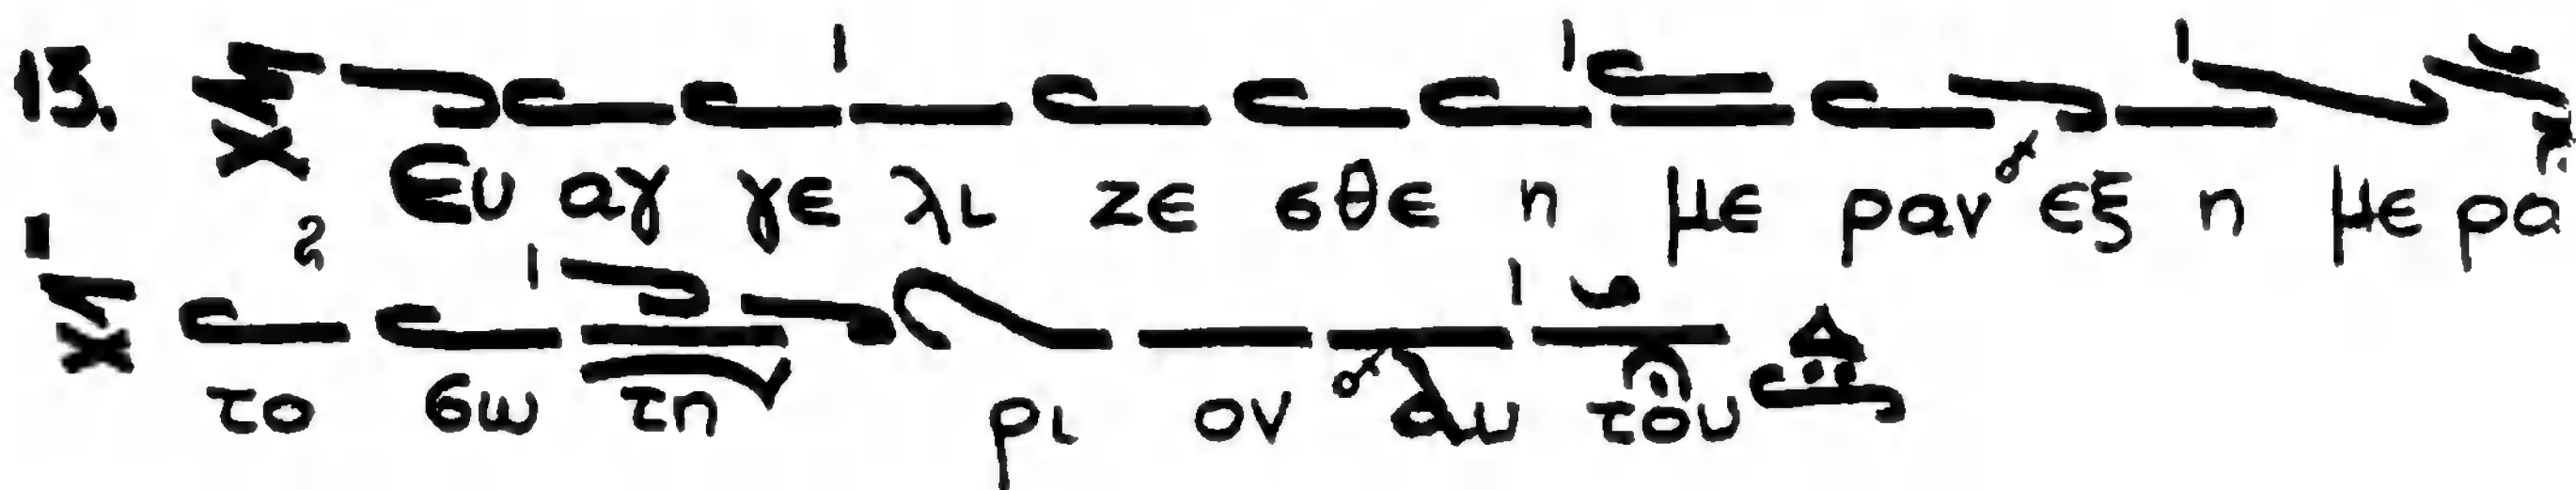 13. Ευ αγ γε λι ζε σθε η με ραν εξ η με ρα
2 το σω τη ρι ον αυ του Δ